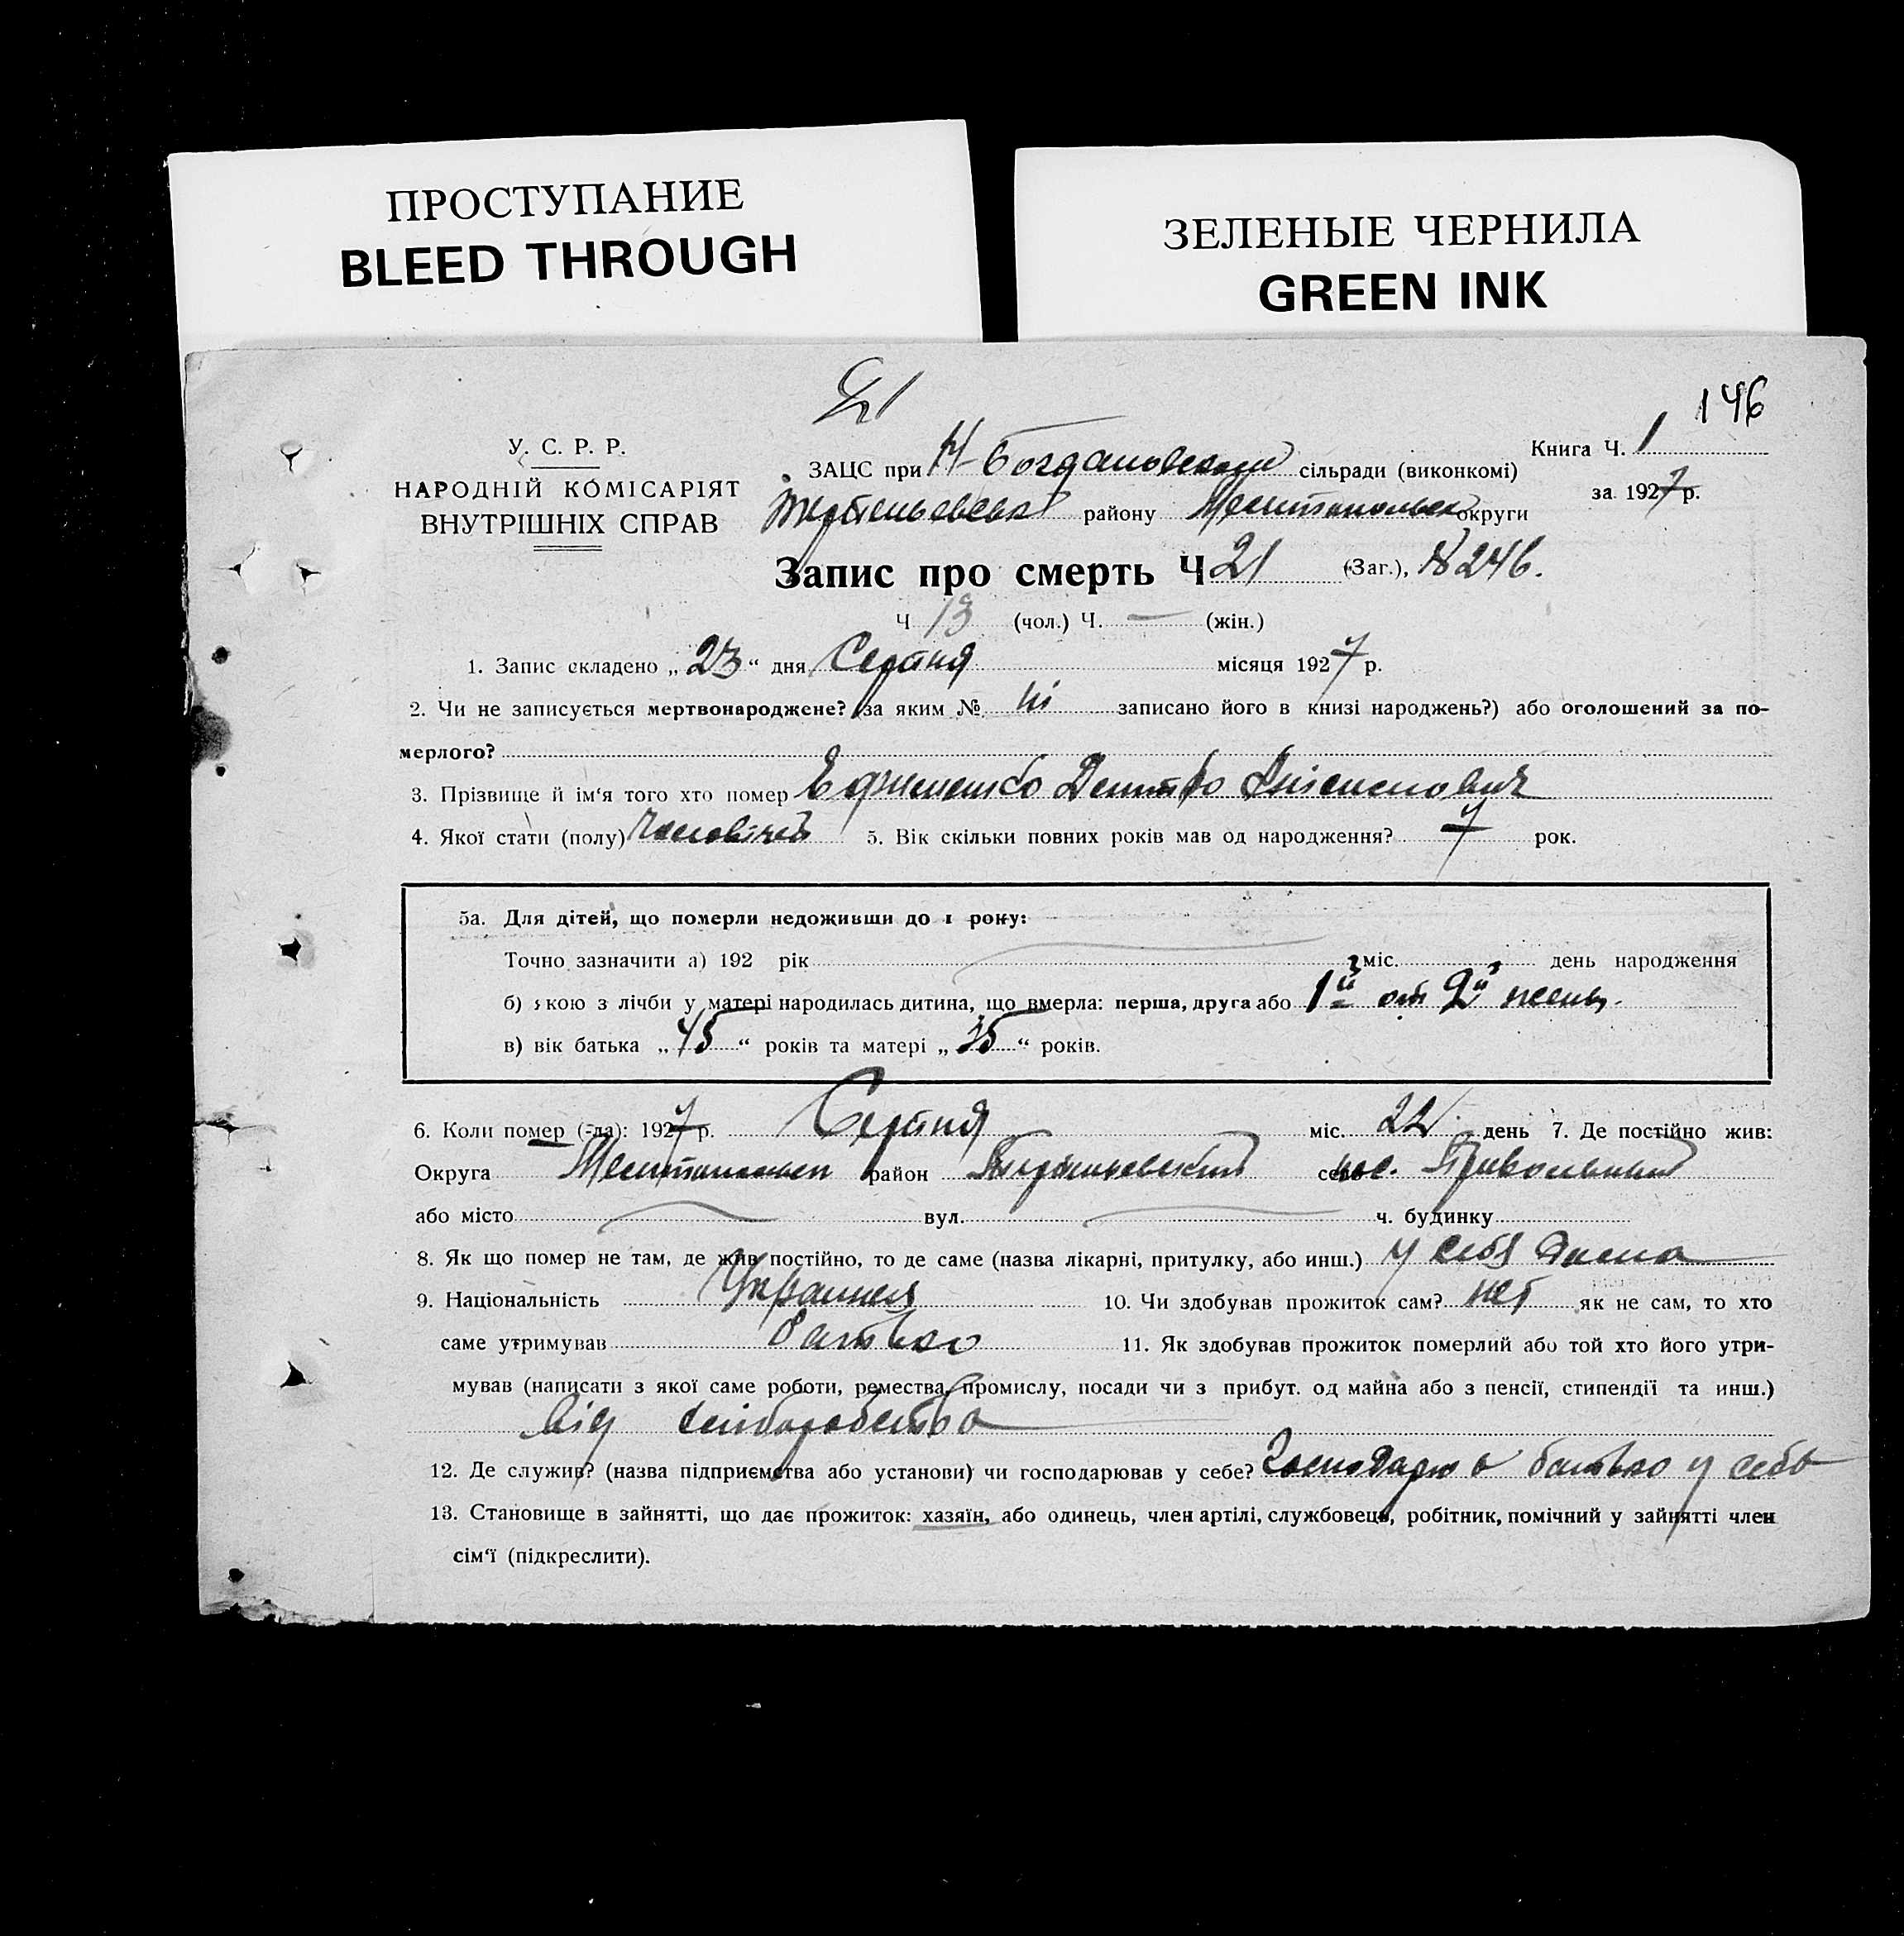 ПРОСТУПАНИЕ
BLEED THROUGH
ЗЕЛЕНЫЕ ЧЕРНИЛА
GREEN INK
21
146
У. С. Р. Р.
НАРОДНІЙ КОМІСАРІЯТ
ВНУТРІШНІХ СПРАВ
Книга Ч. 1
за 1927 р.
ЗАЦС при Н-Богдановском сільради (виконкомі)
району Мелитопольск округи
Запис про смерть Ч 21 (Заг.), № 246.
Ч 13 (чол.) Ч. — (жін.)
1. Запис складено „ 23 “ дня Серпня місяця 1927 р.
2. Чи не записується мертвонароджене? (за яким № ні записано його в книзі народжень?) або оголошений за по-
мерлого?
3. Прізвище й ім‘я того хто помер Дмитро
4. Якої стати (полу) 5. Вік скільки повних років мав од народження? 7 рок.
5а. Для дітей, що померли недоживши до 1 року:
Точно зазначити а) 192 рік міс. день народження
б) якою з лічби у матері народилась дитина, що вмерла: перша, друга або 1й от 2й жены.
в) вік батька „ 45 “ років та матері „ 35 “ років.
6. Коли помер (-ла): 1927 р. Серпня міс. 22 день 7. Де постійно жив:
Округа район село пос. Привольный
або місто вул. ч. будинку
8. Як що помер не там, де жив постійно, то де саме (назва лікарні, притулку, або инш.) у себя дома
9. Національність 10. Чи здобував прожиток сам? нет як не сам, то хто
саме утримував батько 11. Як здобував прожиток померлий або той хто його утри-
мував (написати з якої саме роботи, ремества, промислу, посади чи з прибут. од майна або з пенсії, стипендії та инш.)
від
12. Де служив? (назва підприємства або установи) чи господарював у себе? батько у себе
13. Становище в зайнятті, що дає прожиток: хазяїн, або одинець, член артілі, службовець, робітник, помічний у зайнятті член
сім‘ї (підкреслити).